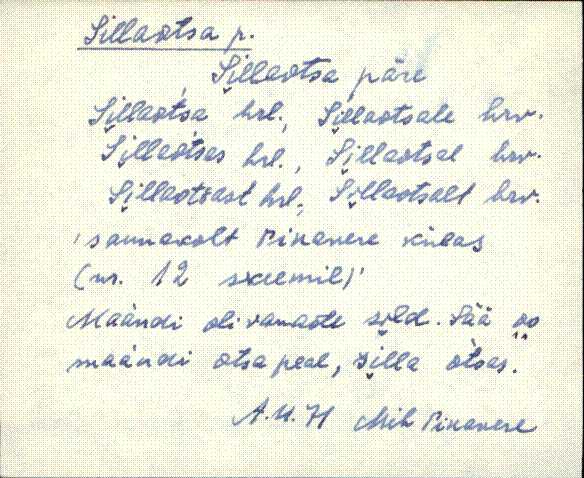 Sillaotsa p.
Sillaotsa päre
Sillaotsa hrl., Sillaotsale hrv.
Sillaotsas hrl., Sillaotsal hrv.
Sillaotsast hrl., Sillaotsalt hrv.
'saunakolt Pikavere külas
(nr. 12 skeemil)'
Maandi oli vanaste sild. Sää oo
maandi otsa peal, silla otsas.
Mih Pikavere